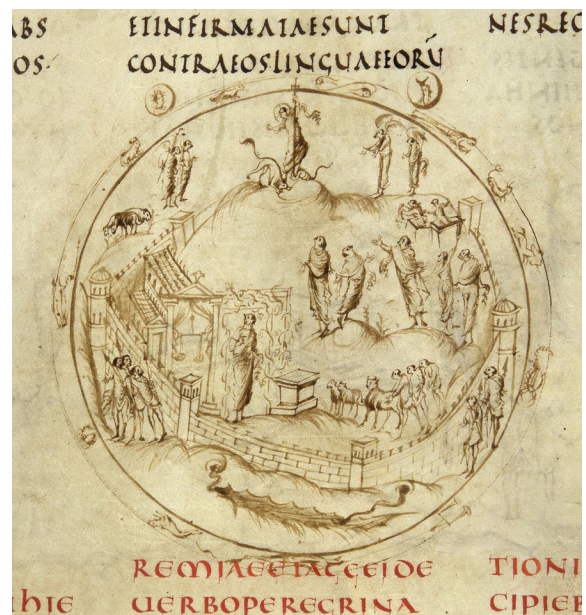 ABS
OS·
ETINFIRMATAESUNT
CONTRAEOSLINGUAEEORŪ
NESREC
REMIAEETAGGEIDE
UERBOPEREGRINA
TIONI
CIPIEN